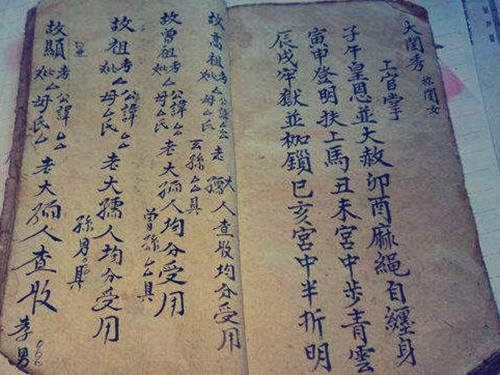 上官掌
子午皇恩並大赦卯酉麻繩自纏身
寅申登明扶上馬丑未宮中步青雲
辰戌牢獄並枷鎖巳亥宮中半折明
故高祖考公諱厶厶妣厶母厶氏老大孺人查收均分受用
玄孫厶厶具
故曾祖考公諱厶厶妣厶母厶氏老大孺人均分受用
曾孫厶厶具
故祖考公諱厶厶妣厶母厶氏老大孺人均分受用
孫男具
故顯考公諱厶厶妣厶母厶氏老大孺人查收
孝男